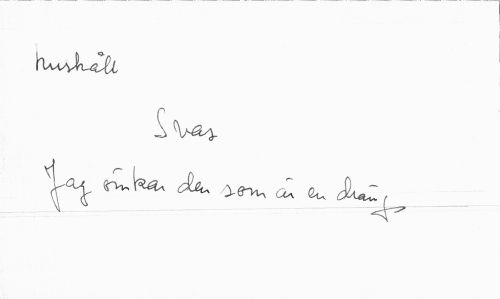 hushåll
Svar
Jag önskar den som är en dräng